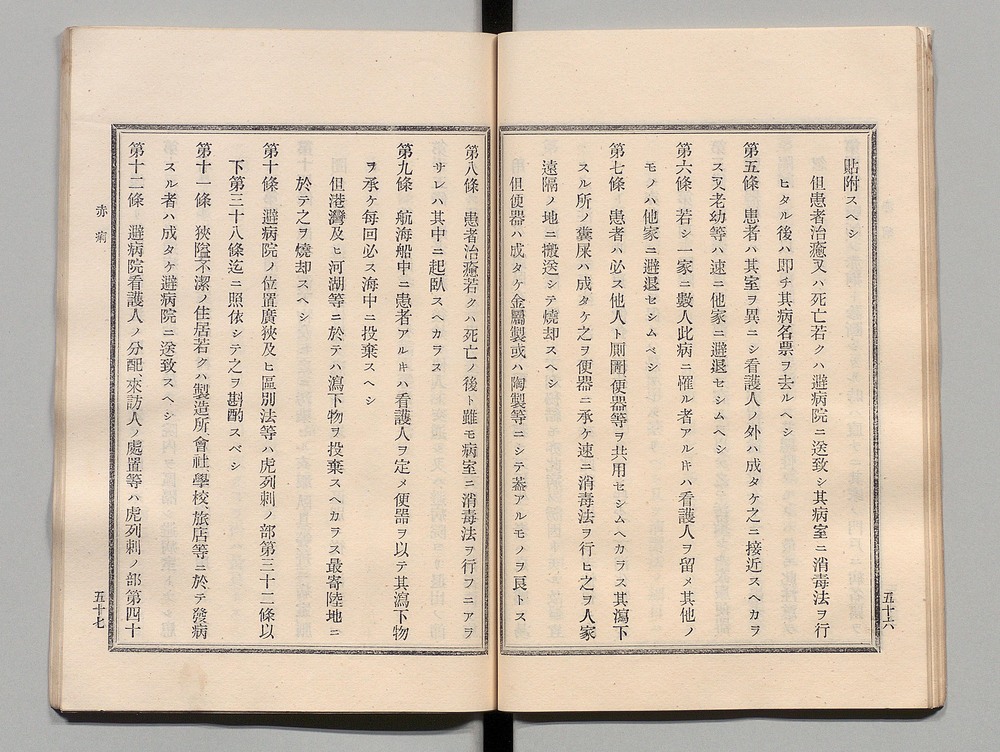 貼附スヘシ
但患者治癒又ハ死亡若クハ避病院ニ送致シ其病室ニ消毒法ヲ行
ヒタル後ハ即チ其病名票ヲ去ルヘシ
第五條 患者ハ其室ヲ異ニシ看護人ノ外ハ成タケ之ニ接近スヘカラ
ス又老幼等ハ速ニ他家ニ避退セシムヘシ
第六條 若シ一家ニ數人此病ニ罹ル者アルキハ看護人ヲ留メ其他ノ
モノハ他家ニ避退セシムベシ
第七條 患者ハ必ス他人ト厠圊便器等ヲ共用セシムヘカラス其瀉下
スル所ノ糞屎ハ成タケ之ヲ便器ニ承ケ速ニ消毒法ヲ行ヒ之ヲ人家
遠隔ノ地ニ搬送シテ燒却スヘシ
但便器ハ成タケ金屬製或ハ陶製等ニシテ葢アルモノヲ良トス
五十六
第八條 患者治癒若クハ死亡ノ後ト雖モ病室ニ消毒法ヲ行フニアヲ
サレハ其中ニ起臥スヘカラス
第九條 航海船中ニ患者アルキハ看護人ヲ定メ便器ヲ以テ其瀉下物
ヲ承ケ每回必ス海中ニ投棄スヘシ
但港灣及ヒ河湖等ニ於テハ瀉下物ヲ投棄スヘカラス最寄陸地ニ
於テ之ヲ燒却スヘシ
第十條 避病院ノ位置廣狹及ヒ區別法等ハ虎列剌ノ部第三十二條以
下第三十八條迄ニ照依シテ之ヲ斟酌スベシ
第十一條 狹隘不潔ノ住居若クハ製造所會社、學校、旅店等ニ於テ發病
スル者ハ成タケ避病院ニ送致スヘシ
第十二條 避病院看護人ノ分配、來訪人ノ處置等ハ虎列剌ノ部第四十
赤痢
五十七